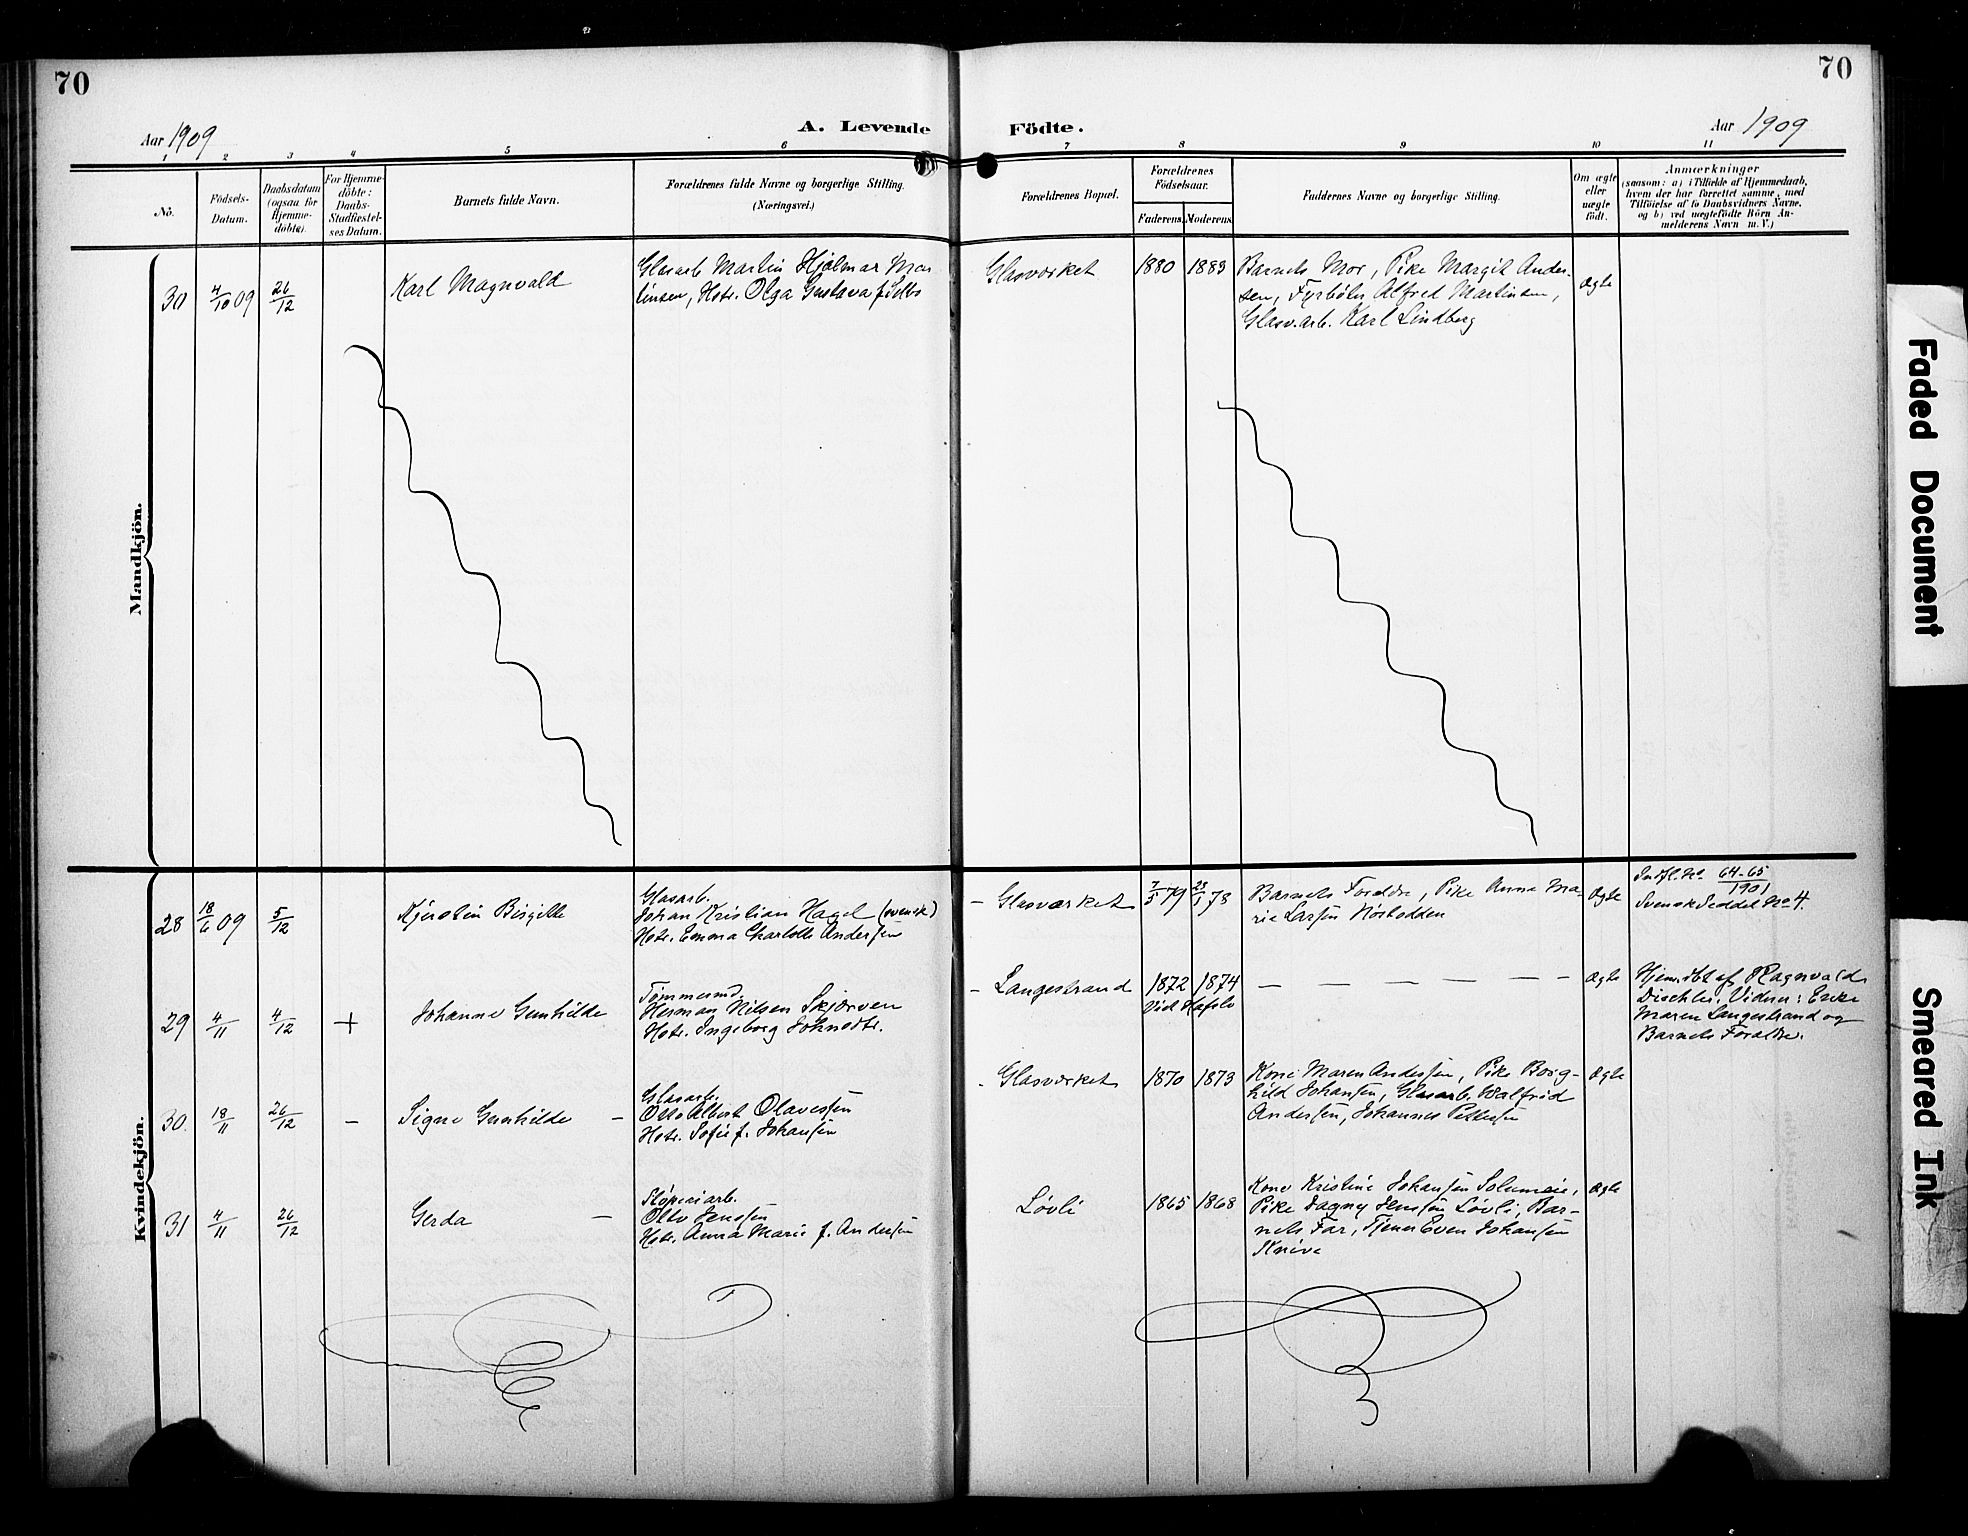 70
70
Aar 1909
A. Levende
Födte.
Aar 1909
1 2 3 4 5 6 7 8 9 10 11
No.
Födsels-
Datum.
Daabsdatum
(ogsaa for
Hjemme-
döbte).
For Hjemme-
döbte:
Daabs-
Stadfæstel-
ses Datum.
Barnets fulde Navn.
Forældrenes fulde Navne og borgerlige Stilling.
(Næringsvei.)
Forældrenes Bopæl.
Forældrenes
Födselsaar.
Faderens.
Moderens.
Faddernes Navne og borgerlige Stilling.
Om ægte
eller
uægte
födt.
Anmærkninger
(saasom: a) i Tilfælde af Hjemmedaab,
hvem der har forrettet samme, med
Tilföielse af to Daabsvidners Navne,
og b) ved uægtefödte Börn An-
melderens Navn m. V.)
Mandkjön.
30 4/10 09 26/12
Karl Magnvald
Glasarb Martin Hjalmar Mar
tinsen, Hstr. Olga Gustava
Glasværket
1880 1883
Barnets Mor, Pike Margit Ander-
sen, Fyrbøter Alfred Martinsen,
Glasv.arb. Karl Lindberg
ægte
Kvindekjön.
28 18/6 09 5/12
Kjerstin Birgitte
Glasarb.
Johan Kristian Hagel (svensk)
Hstr. Emma Charlotte Andersen
- Glasværket
7/5 79 23/1 78
Barnets Forældre, Pike Anna Ma-
rie Larsen Nøstodden
ægte
Indfl. No. 64-65/1901
Svensk Seddel No 4.
29 4/11 4/12 +
Johanne Gunhilde
Tømmermd.
Herman Nilsen Skjærven
Hstr. Ingeborg Johnsdtr.
- Langestrand
1872 1874
Vid Hafslo
— — — — — —
ægte
Hjem.dbt af Ragnvald
Dischler. Vidner: Enke
Maren Langestrand og
Barnets Forældre.
30. 18/11 26/12 –
Signe Gunhilde –
Glasarb.
Otto Albert Olavesen
Hstr. Sofie f. Johansen
- Glasværket
1870 1873
Kone Maren Andersen, Pike Borg-
hild Johansen, Glasarb. Walfrid
Andersen, Johannes Pettersen
ægte
31 4/11 26/12
Gerda –
Sløperiarb.
Otto Jensen
Hstr. Anna Marie f. Andersen
Løvli
1865 1868
Kone Kristine Johansen Solumeie,
Pike Dagny Jensen Løvli, Bar-
nets Far, Tjener Even Johansen
Knive
ægte
Faded Document
Smeared Ink